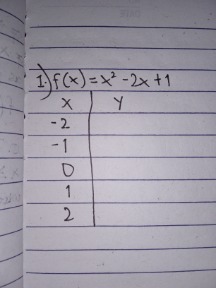 1.) f(x) = x² - 2x + 1
x y
-2
-1
0
1
2